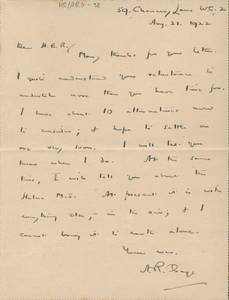 59, Chancery Lane WC. 2
Aug. 21. 1922
Dear H.E.R,
Many thanks for your letter.
I quite understand your reluctance to
undertake more than you have time for.
I have about 10 alternatives
to consider; & hope to settle on
one very soon. I will let you
know when I do. At the same
time, I will tell you about the
M.S. At present it is with
everything else, in the air; & I
cannot bring it to earth alone.
Yours ever,
A.R.